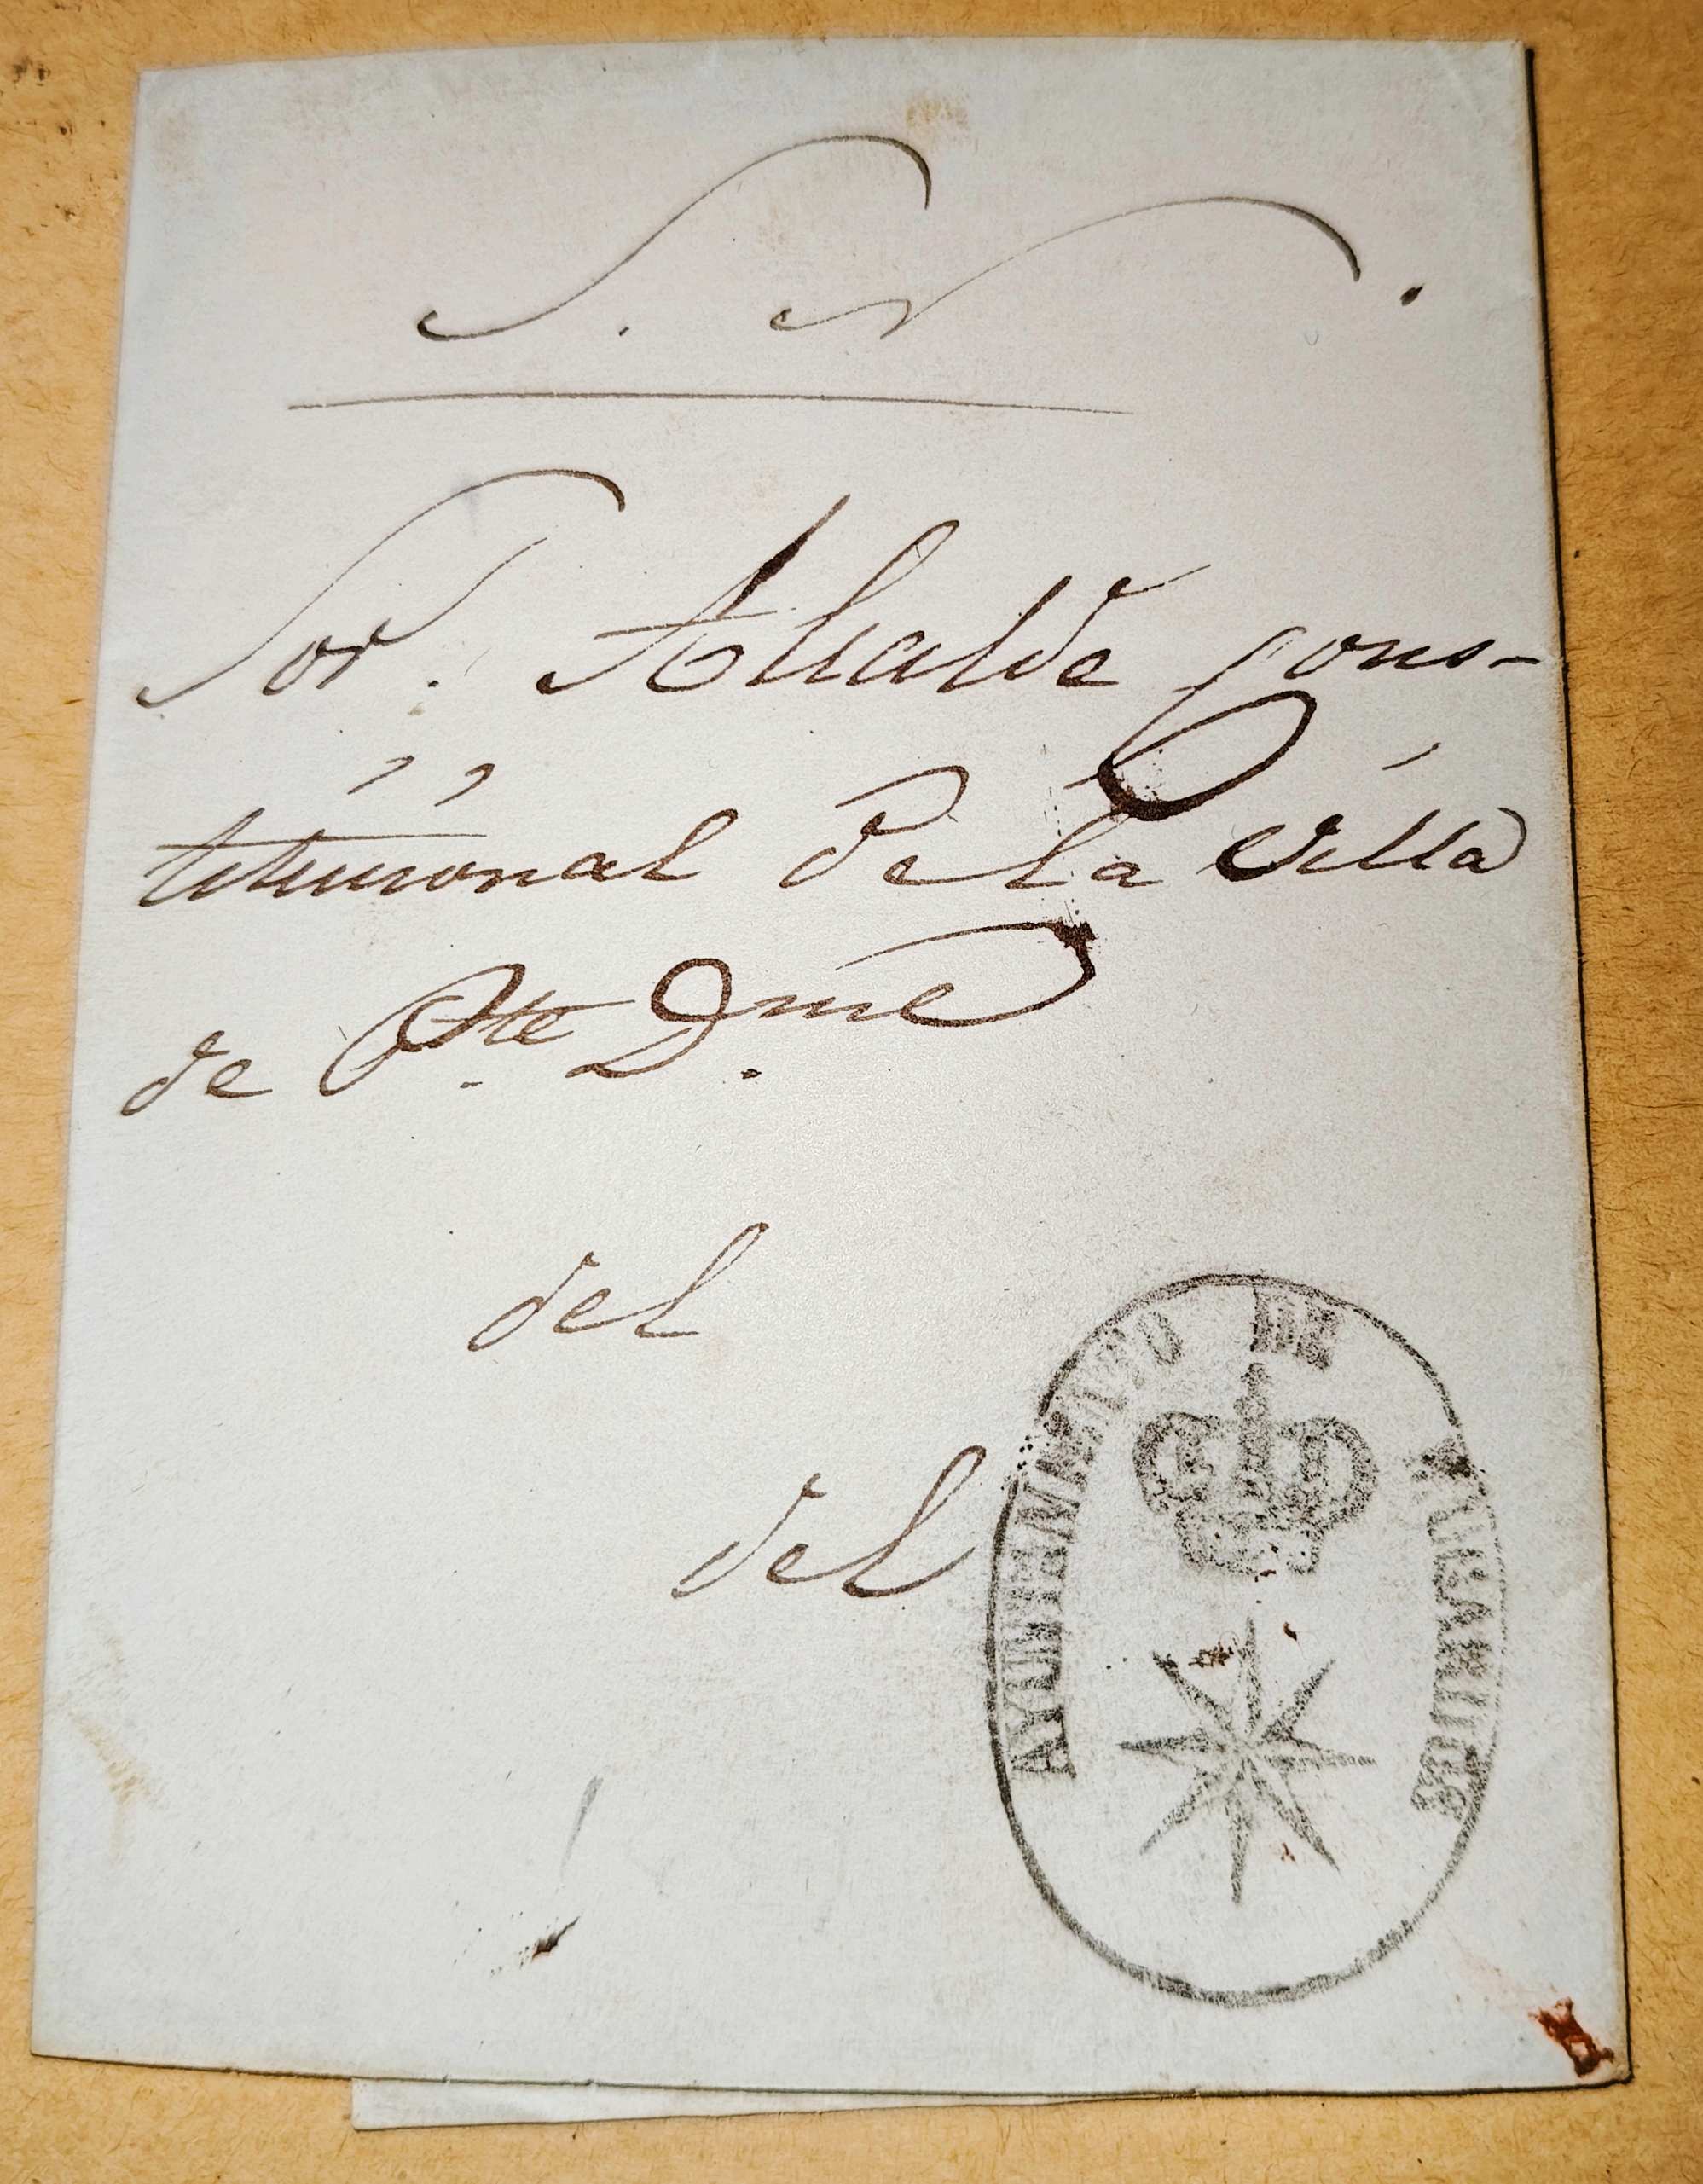 S. N.
Sor. Alcalde cons-
titucional de la Villa
de Pte. D.me
del
del
AYUNTAMIENTO DE